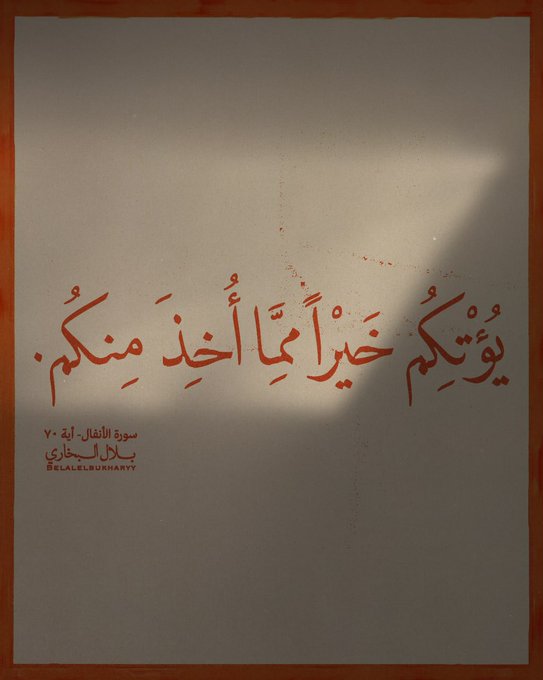 يُؤْتِكُمْ خَيْراً مِمَّا أُخِذَ مِنكُم.
سورة الأنفال- آية ٧٠
بلال البخاري
BELALELBUKHARYY